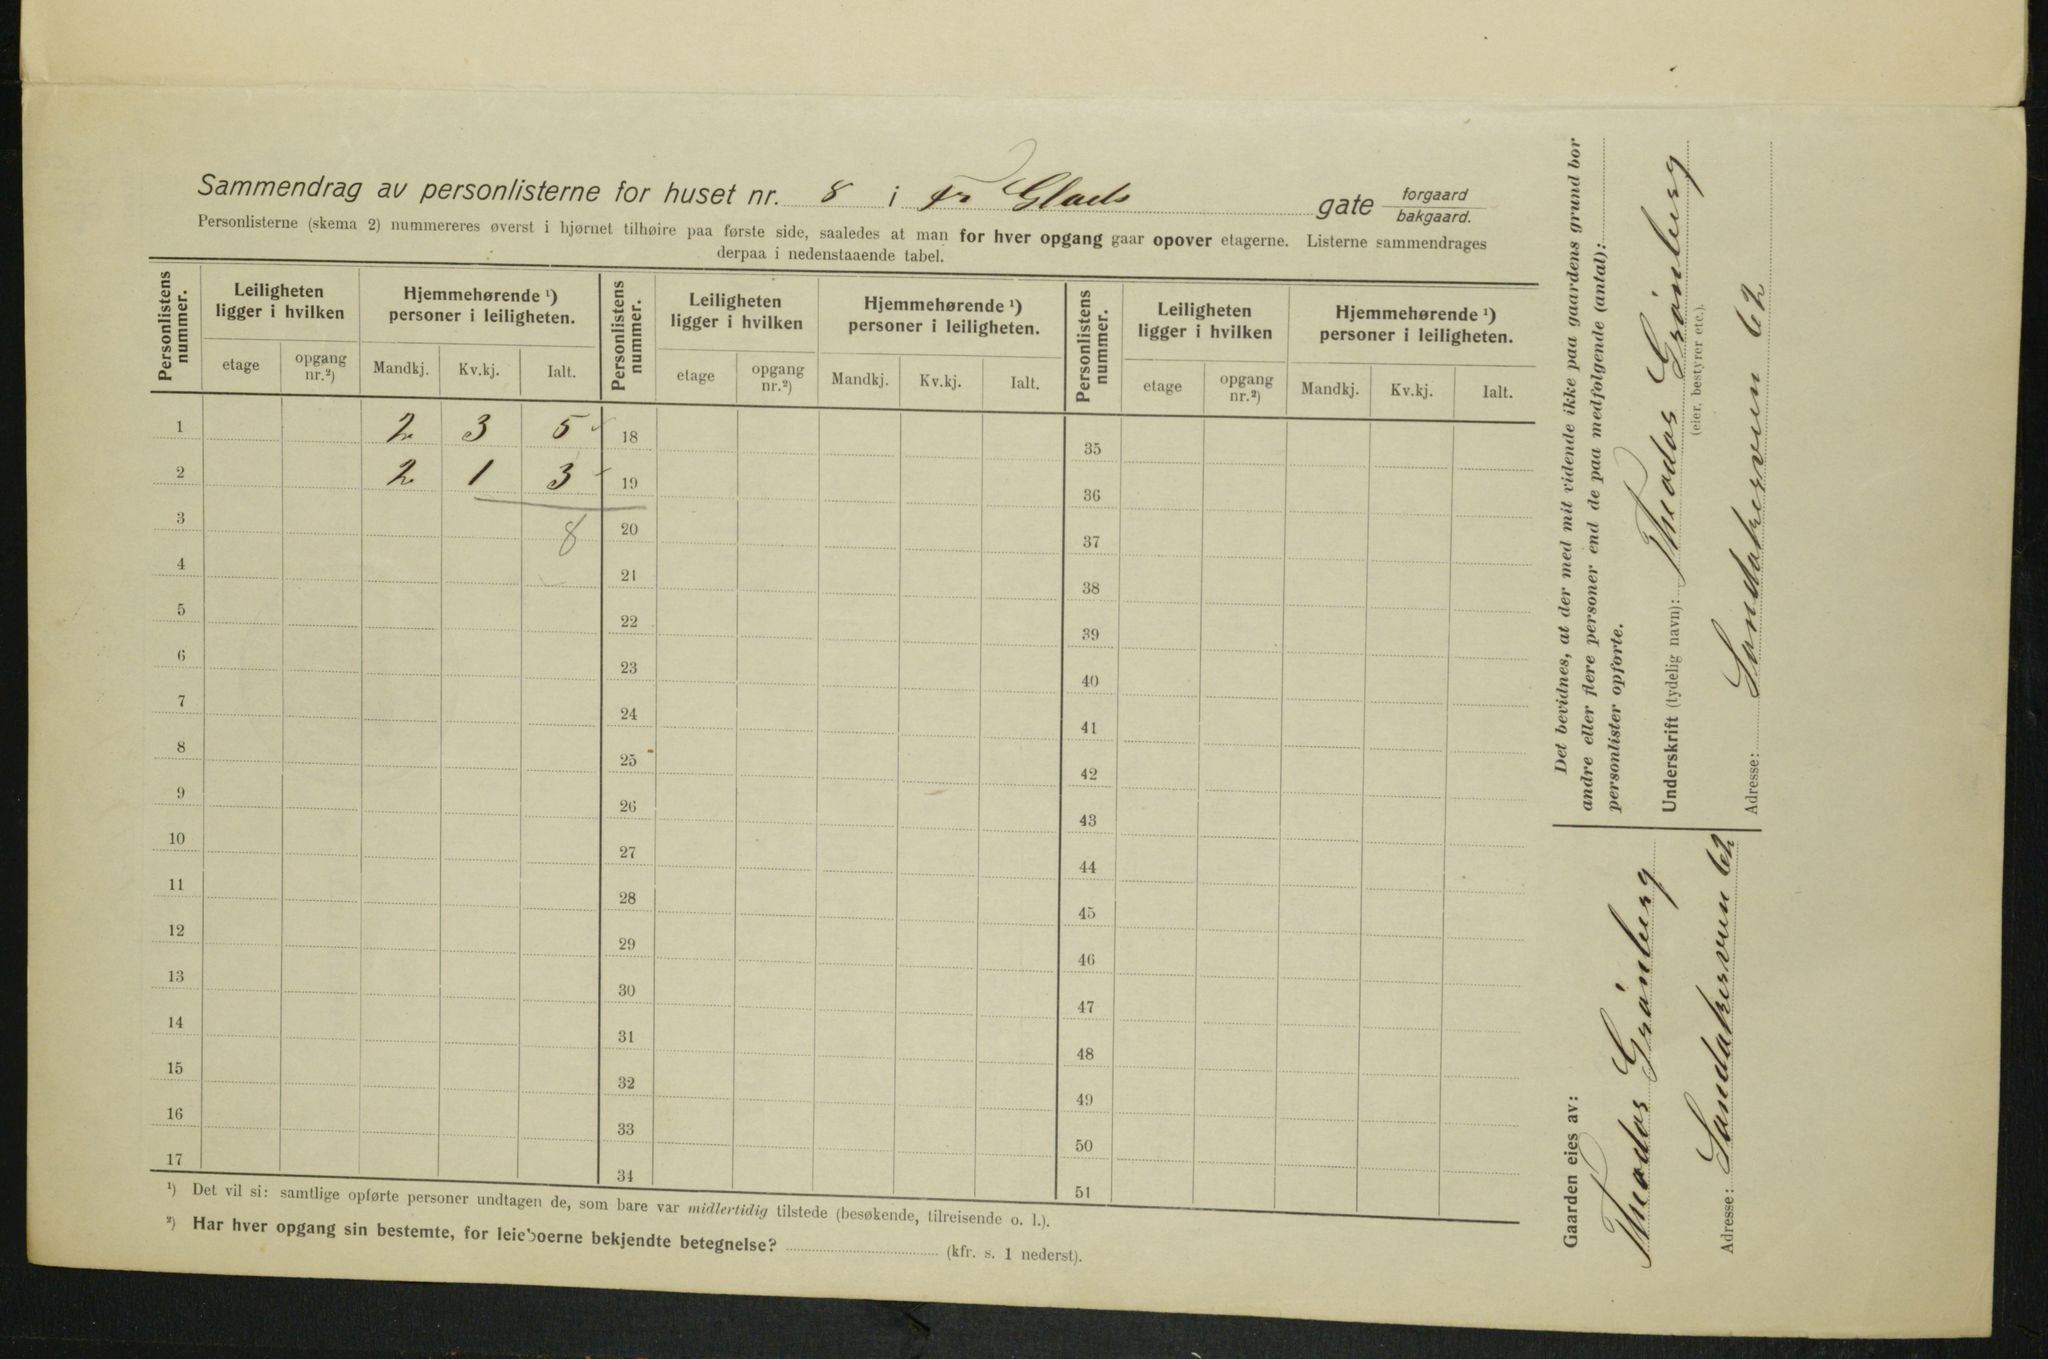 Sammendrag av personlisterne for huset nr. 8 i Fr Glads gate forgaard bakgaard.
Personlisterne (skema 2) nummereres øverst i hjørnet tilhøire paa første side, saaledes at man for hver opgang gaar opover etagerne. Listerne sammendrages
derpaa i nedenstaaende tabel.
Personlistens nummer. Leiligheten ligger i hvilken Hjemmehørende ¹) personer i leiligheten. Personlistens nummer. Leiligheten ligger i hvilken Hjemmehørende ¹) personer i leiligheten. Personlistens nummer. Leiligheten ligger i hvilken Hjemmehørende ¹) personer i leiligheten.
etage opgang nr.²) Mandkj. Kv.kj. Ialt. etage opgang nr.²) Mandkj. Kv.kj. Ialt. etage opgang nr.²) Mandkj. Kv.kj. Ialt.
1 2 3 5 18 35
2 2 1 3 19 36
3 8 20 37
4 21 38
5 22 39
6 23 40
7 24 41
8 25 42
9 26 43
10 27 44
11 28 45
12 29 46
13 30 47
14 31 48
15 32 49
16 33 50
17 34 51
¹) Det vil si: samtlige opførte personer undtagen de, som bare var midlertidig tilstede (besøkende, tilreisende o. l.).
²) Har hver opgang sin bestemte, for leieboerne bekjendte betegnelse? (kfr. s. 1 nederst).
Det bevidnes, at der med mit vidende ikke paa gaardens grund bor
andre eller flere personer end de paa medfølgende (antal):
personlister opførte.
Underskrift (tydelig navn): Theodor Grønberg
(eier, bestyrer etc.).
Adresse: Sandakerveien 62
Gaarden eies av:
Theodor Grønberg
Adresse: Sandakerveien 62